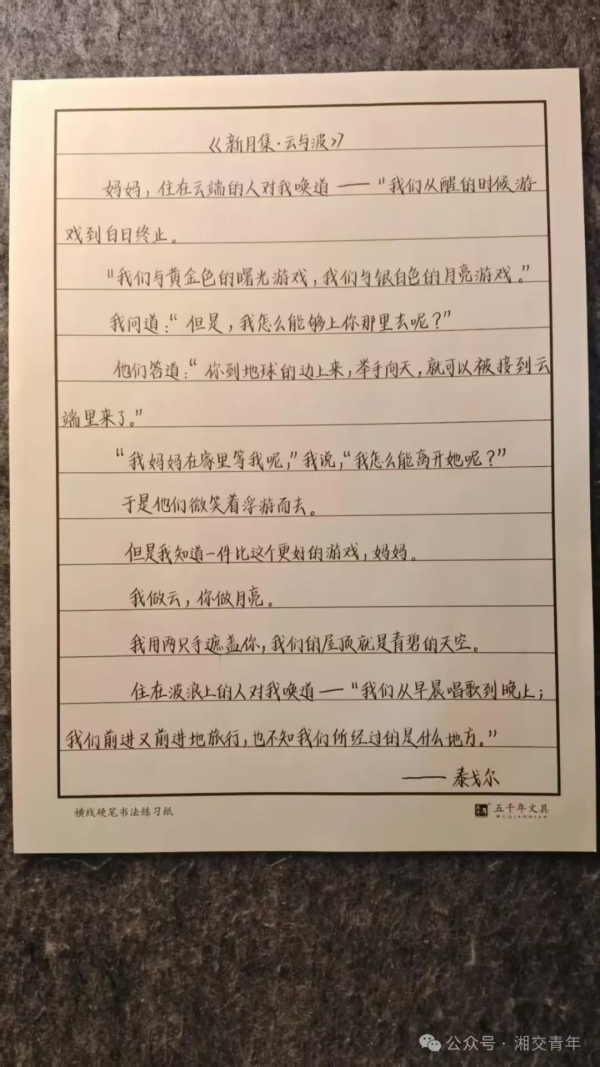 《新月集·云与波》
妈妈，住在云端的人对我唤道——“我们从醒的时候游
戏到白日终止。
“我们与黄金色的曙光游戏，我们与银白色的月亮游戏。”
我问道：“但是，我怎么能够上你那里去呢？”
他们答道：“你到地球的边上来，举手向天，就可以被接到云
端里来了。”
“我妈妈在家里等我呢，”我说，“我怎么能离开她呢？”
于是他们微笑着浮游而去。
但是我知道一件比这个更好的游戏，妈妈。
我做云，你做月亮。
我用两只手遮盖你，我们的屋顶就是青碧的天空。
住在波浪上的人对我唤道——“我们从早晨唱歌到晚上；
我们前进又前进地旅行，也不知我们所经过的是什么地方。”
——泰戈尔
横线硬笔书法练习纸
五千年文具
WUQIANNIAN
公众号·湘交青年